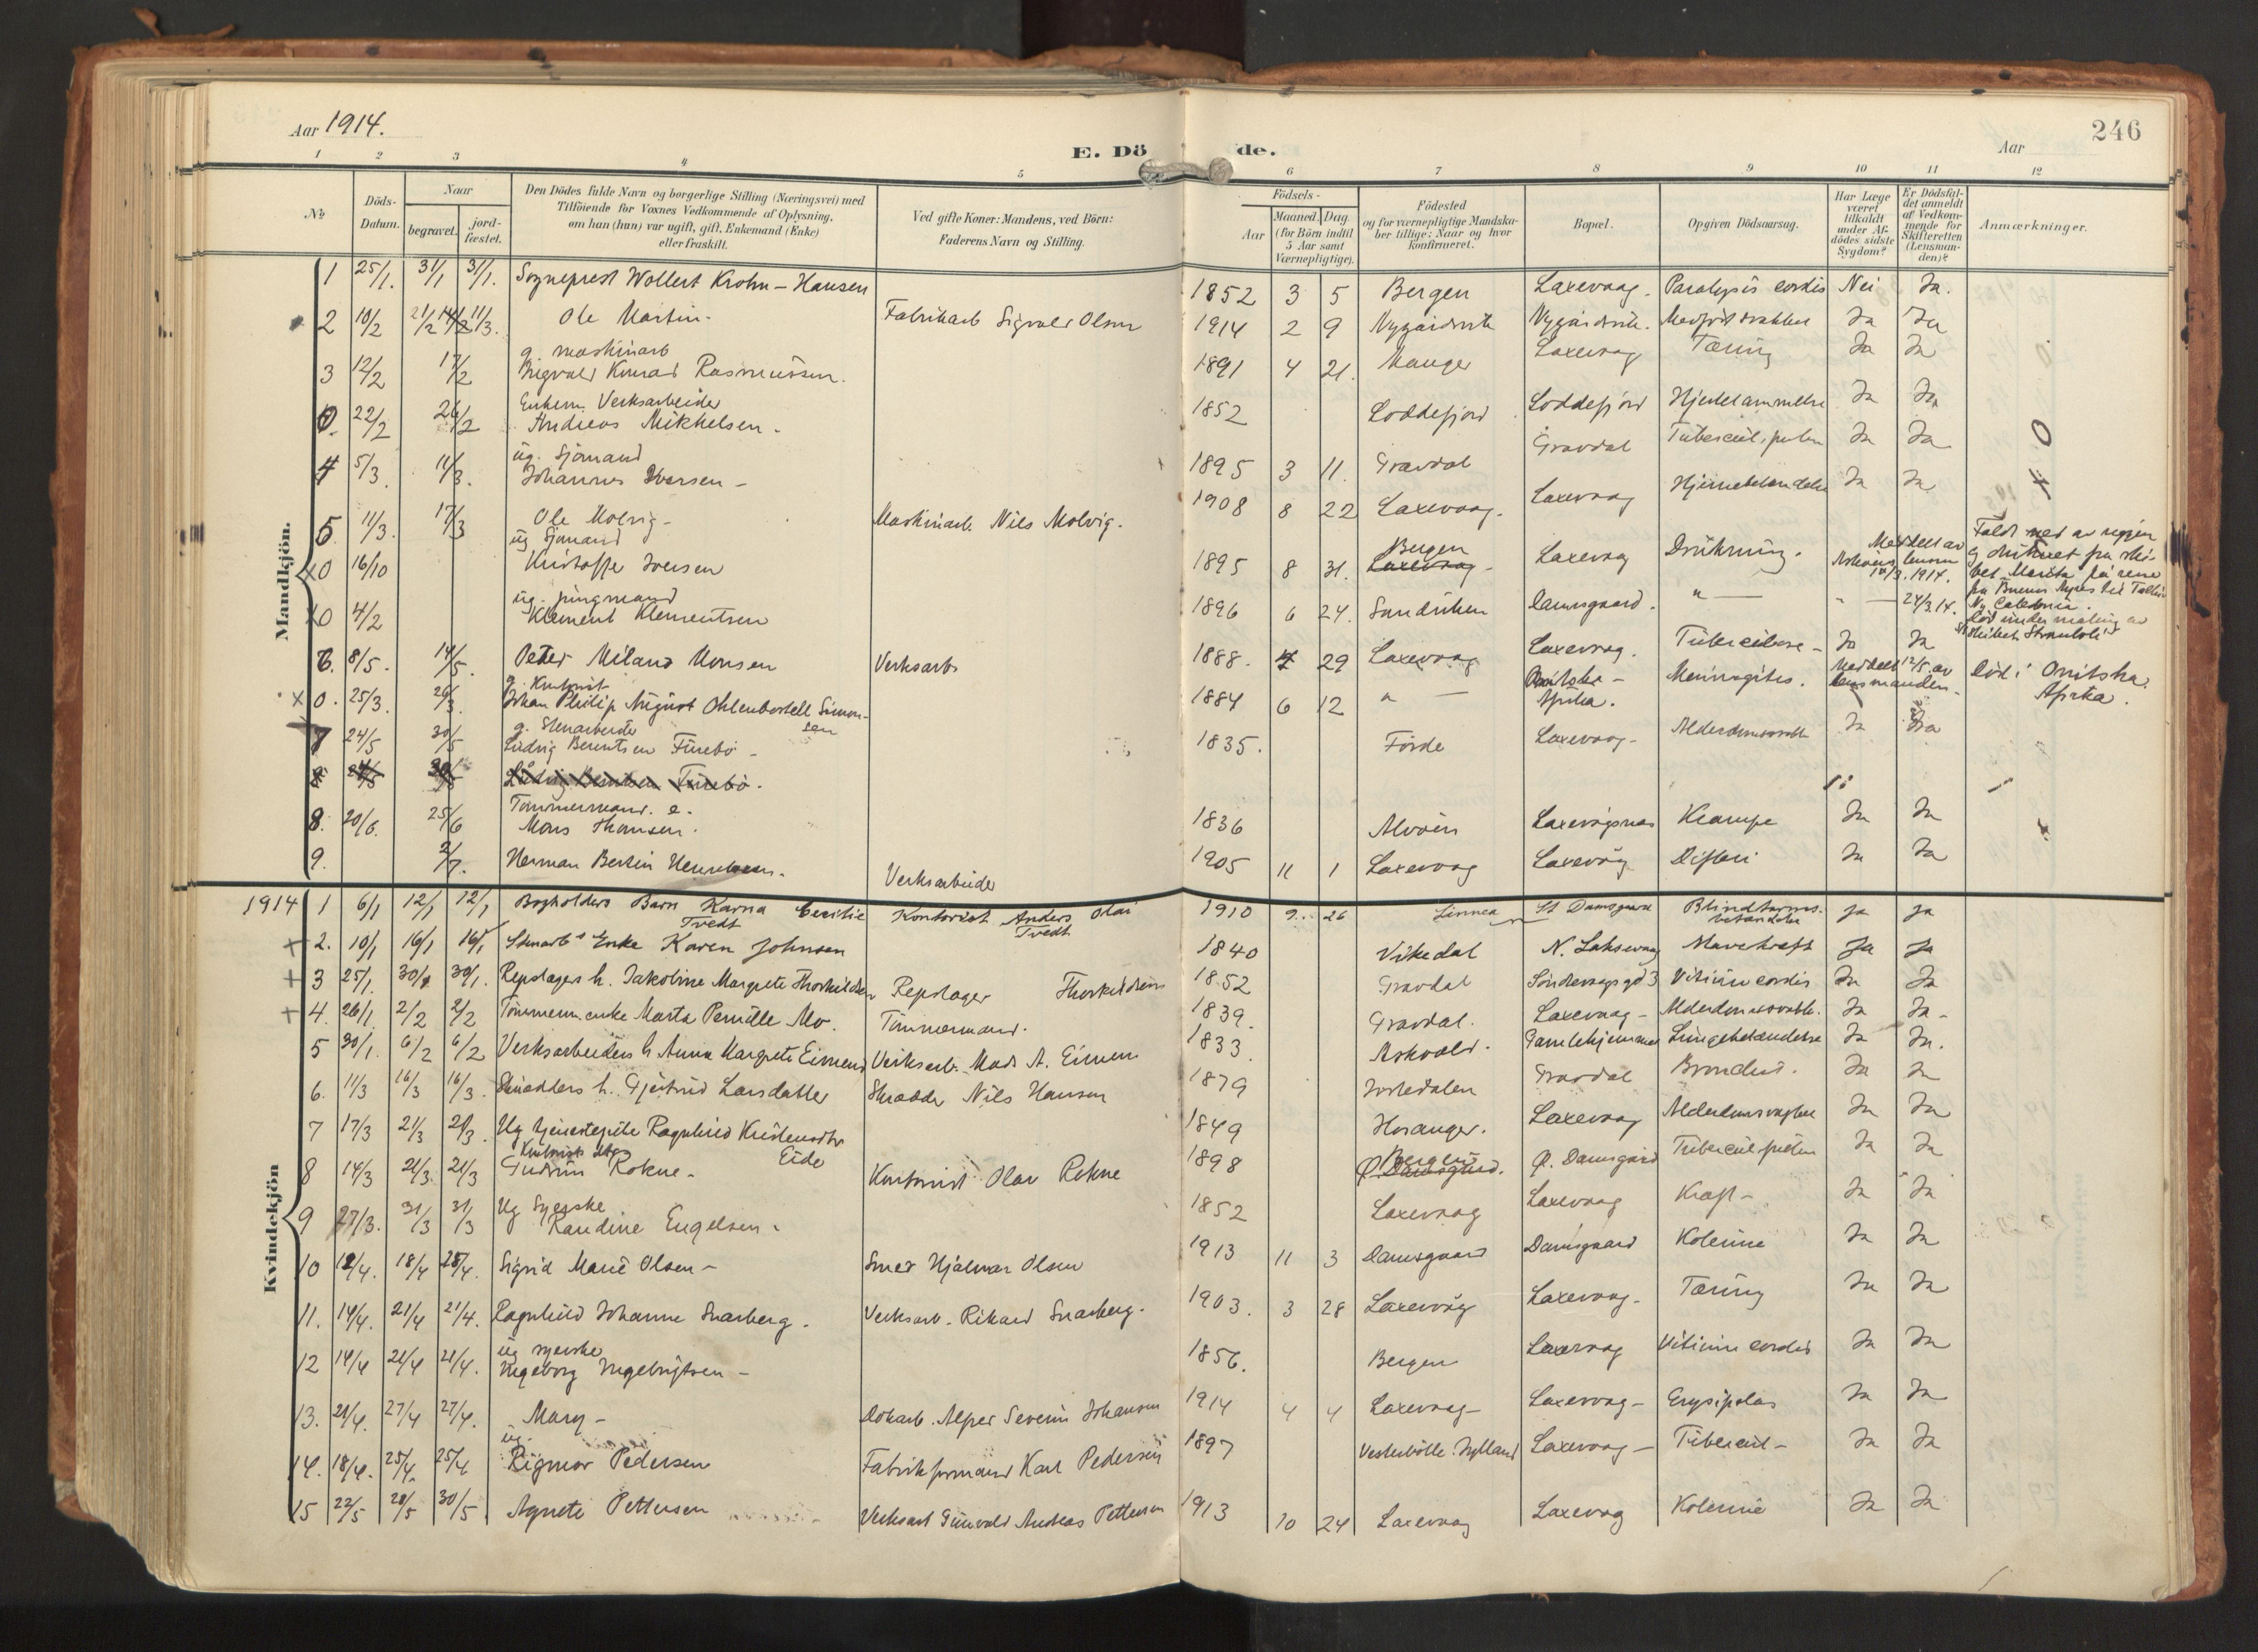 Aar 1914.
E. Döde.
Aar
246
1 2 3 4 5 6 7 8 9 10 11 12
No
Döds-Datum.
Naar
begravet.
jord-fæstet.
Den Dödes fulde Navn og borgerlige Stilling (Næringsvei) med
Tilföiende for Voxnes Vedkommende af Oplysning,
om han (hun) var ugift, gift, Enkemand (Enke)
eller fraskilt.
Ved gifte Koner: Mandens, ved Börn:
Faderens Navn og Stilling.
Födsels-
Aar
Maaned. Dag.
(for Börn indtil
5 Aar samt
Værnepligtige).
Födested
og for værnepligtige Mandska-
ber tillige: Naar og hvor
konfirmeret.
Bopæl.
Opgiven Dödsaarsag.
Har Læge
været
tilkaldt
under Af-
dödes sidste
Sygdom?
Er Dödsfal-
det anmeldt
af Vedkom-
mende for
Skifteretten
(Lensman-
den)?
Anmærkninger.
Mandkjön.
1 25/1. 31/1 31/1. Sogneprest Wollert Krohn-Hansen 1852 3 5 Bergen Laxevaag. Paralysis cordis Nei Ja.
2 10/2 21/2 11/3. Ole Martin. Fabrikarb Sigvald Olsen 1914 2 9 Nygårdsvik Nygårdsvik. Ja Ja
g. maskinarb
3 12/2 17/2 Ingvald Konrad Rasmussen. 1891 4 21. Manger Laxevaag Tæring Ja Ja
Enkem. Verksarbeider
0. 22/2 26/2 Andreas Mikkelsen. 1852 Loddefjord Loddefjord Hjertelammelse Ja Ja
ug. Sjömand
4 5/3. 11/3. Johannes Iversen - 1895 3 11. Gravdal Gravdal Ja Ja 0
5 11/3. 17/3 Ole Molvig - Maskinarb. Nils Molvig. 1908 8 22 Laxevaag. Laxevaag Hjernebetændelse Ja Ja
ug Sjömand
x0 16/10 Kristoffer Iversen 1895 8 31. Bergen Laxevaag Laxevaag Drukning. Meddelt av lensm 1914. Faldt ned av riggen og druknet fra ski- bet Marita på reise fra Buenos Ayres til Ny Caledonia.
ug. jungmand
x0 4/2 Klement Klementsen 1896 6 24. Sandviken Damsgaard. " 24/3.14.
6. 8/5. 14/5. Peder Miland Monsen Verksarb. 1888. 7 29 Laxevaag Laxevaag. Tuberculose - Ja Ja
g. Kontorist
x 0. 25/3. 26/3. Johan Philip August Ohlenbostell Simon-sen 1884 6 12 " Onitsha - Afrika. Meningitis. Meddelt 12/5 av lensmanden. Död i Onitsha Afrika.
g. Stenarbeider
7 24/5 30/5 Ludvig Berentsen Furebö - 1835. Förde Laxevaag - Ja Ja
8 24/5 30/5 Ludvig Berentsen Furebö.
Tömmermand. e.
8. 20/6. 25/6 Mons Hansen. 1836 Alvöen Laxevågsnes Krampe Ja Ja
9. 2/7. Herman Bertin Verksarbeider 1905 11 1 Laxevaag Laxevåg Difteri Ja Ja
Kvindekjön
1914 1 6/1 12/1 12/1 Bogholders Barn Karna Cecilie Tvedt Kontorist Anders Olai Tvedt 1910 9. 26 Linnea St Damsgaard Blindtarms-betændelse ja ja
+ 2. 10/1 16/1 16/1 Stenarb's Enke Karen Johnsen 1840 Vikedal N. Laksevaag Mavekræft Ja Ja
+ 3 25/1. 30/1 30/1. Repslagers h. Jakobine Margrete Thorkildsen Repslager Thorkildsen 1852 Gravdal Vitium cordis Ja Ja
+ 4. 26/1. 2/2 2/2 Tömmerm. enke Marta Pernille Mo. Tömmermand. 1839. Gravdal. Laxevaag - Ja Ja -
5 30/1. 6/2 6/2 Verksarbeiders h Anna Margrete Eimen Verksarb. Mads A. Eimen 1833. Askvold. Gamlehjemmet Lungebetændelse Ja Ja.
6. 11/3 16/3 16/3. Skrædders h. Gjertrud Larsdatter Skrædder Nils Hansen 1879 Jostedalen Gravdal Ja Ja
7 17/3 21/3 21/3. Ug tjenestepike Ragnhild Eide 1849 Hosanger. Laxevaag Ja Ja
Kontorist dtr
8 14/3 21/3 21/3 Gudrun Rokne - Kontorist Olav Rokne 1898 Bergen Ø. Damsgård. Ø. Damsgård Ja Ja
Ug Syerske
9 27/3. 31/3 31/3 Randine Engelsen - 1852 Laxevaag Laxevaag Kræft - Ja Ja
10 12/4. 18/4 28/4. Sigrid Marie Olsen - Smed Hjalmar Olsen 1913 11 3 Damsgaard Damsgaard Kolerine Ja Ja
11. 14/4. 21/4 21/4. Ragnhild Johanne Snarberg. Verksarb. Rikard Snarberg. 1903. 3 28 Laxevåg Laxevaag. Tæring Ja Ja
ug syerske
12 14/4 21/4 21/4. Ingeborg Ingebrigtsen - 1856. Bergen Laxevaag Vitium cordis Ja Ja
13. 21/4. 27/4 27/4. Mary - Dokarb. Alfred Severin Johansen 1914 4 4 Laxevaag - Laxevaag - Erysipelas Ja Ja
ug.
14. 18/4. 25/4. 25/4 Rigmor Pedersen Fabrikformand Karl Pedersen 1897 Vesterbölle Jylland Laxevaag - Tubercul - Ja Ja
15 22/5 28/5 30/5. Agnete Pettersen Verksarb Gunvald Andreas Pettersen 1913 10 24 Laxevaag Laxevaag Kolerine Ja Ja